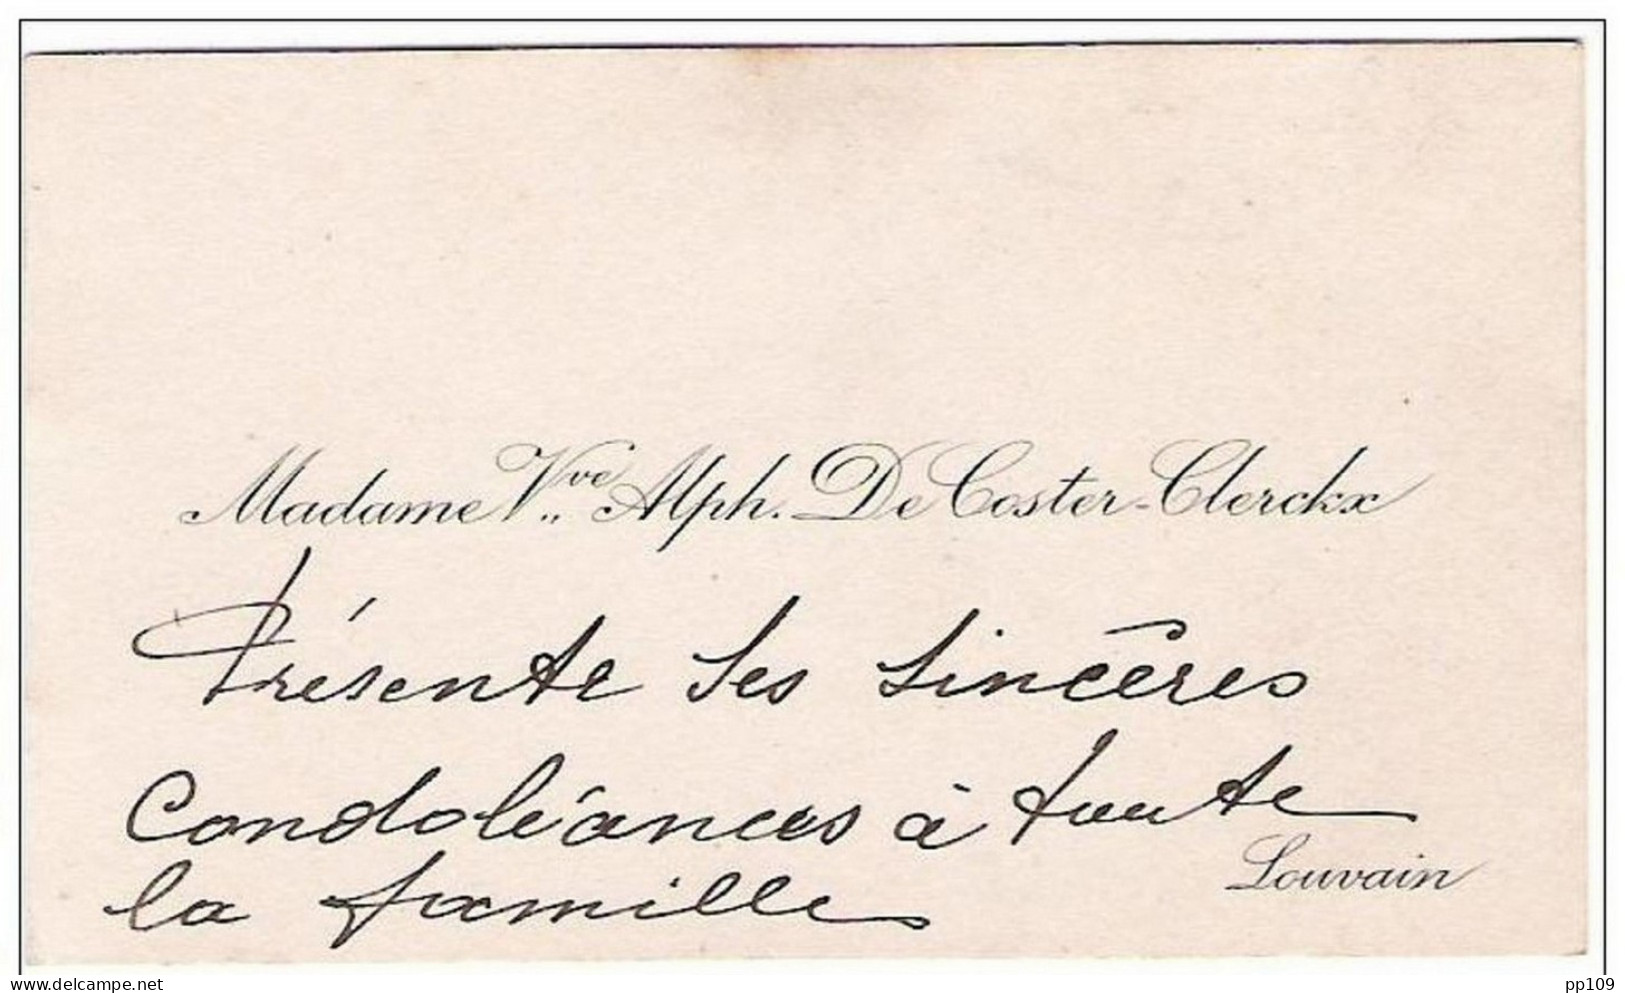 Madame Vve Alph. De Coster-Clerckx
Présente ses sincères
Condoléances à toute
la famille
Louvain
delcampe.net
pp109